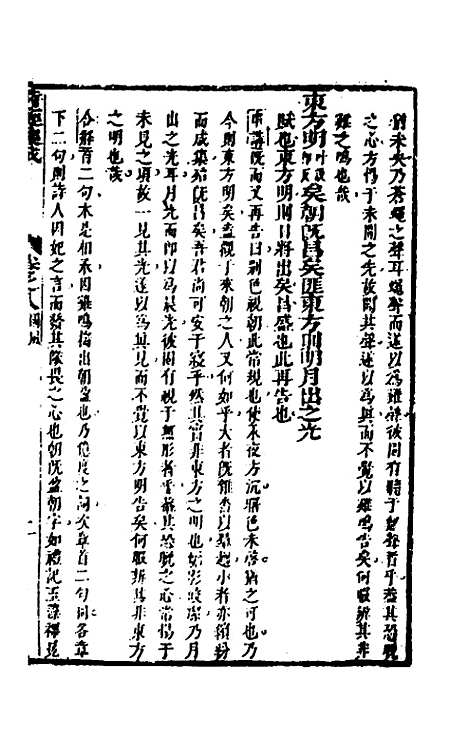 猶未矣乃蒼蠅之聲耳蠅聲而遂以為雞聲彼固有聽于無聲者乎蓋其恐晚
之心方惕于未聞之先故聞其聲遂以為真而不覺以雞鳴告矣何暇辨其非
雞之鳴也哉
東方明矣朝既昌矣匪東方則明月出之光
賦也東方明則日將出矣昌盛也此再告也
講既而又再告曰別色視朝此常規也使永夜方沉曙色未啓猶之可也乃
今則東方明矣盈視于來朝之人又何如乎大者既雝雝以羣趨小者亦繽紛
而成集蓋既昌矣吾君尚可安于寢乎然其實非東方之明也皎乃月
出之光耳月光而即以為晨光彼固有視于無形者乎蓋其恐晚之心常惕于
未見之頃故一見其光遂以為真見而不覺以東方明告矣何暇辨其非東方
之明也哉
合解首二句本是相承因雞鳴指出朝盈也乃之詞次章首二句同各章
下二句則詩人因妃之言而發其儆畏之心也朝既盈朝字如禮記玉藻
詩經
卷之八 國風